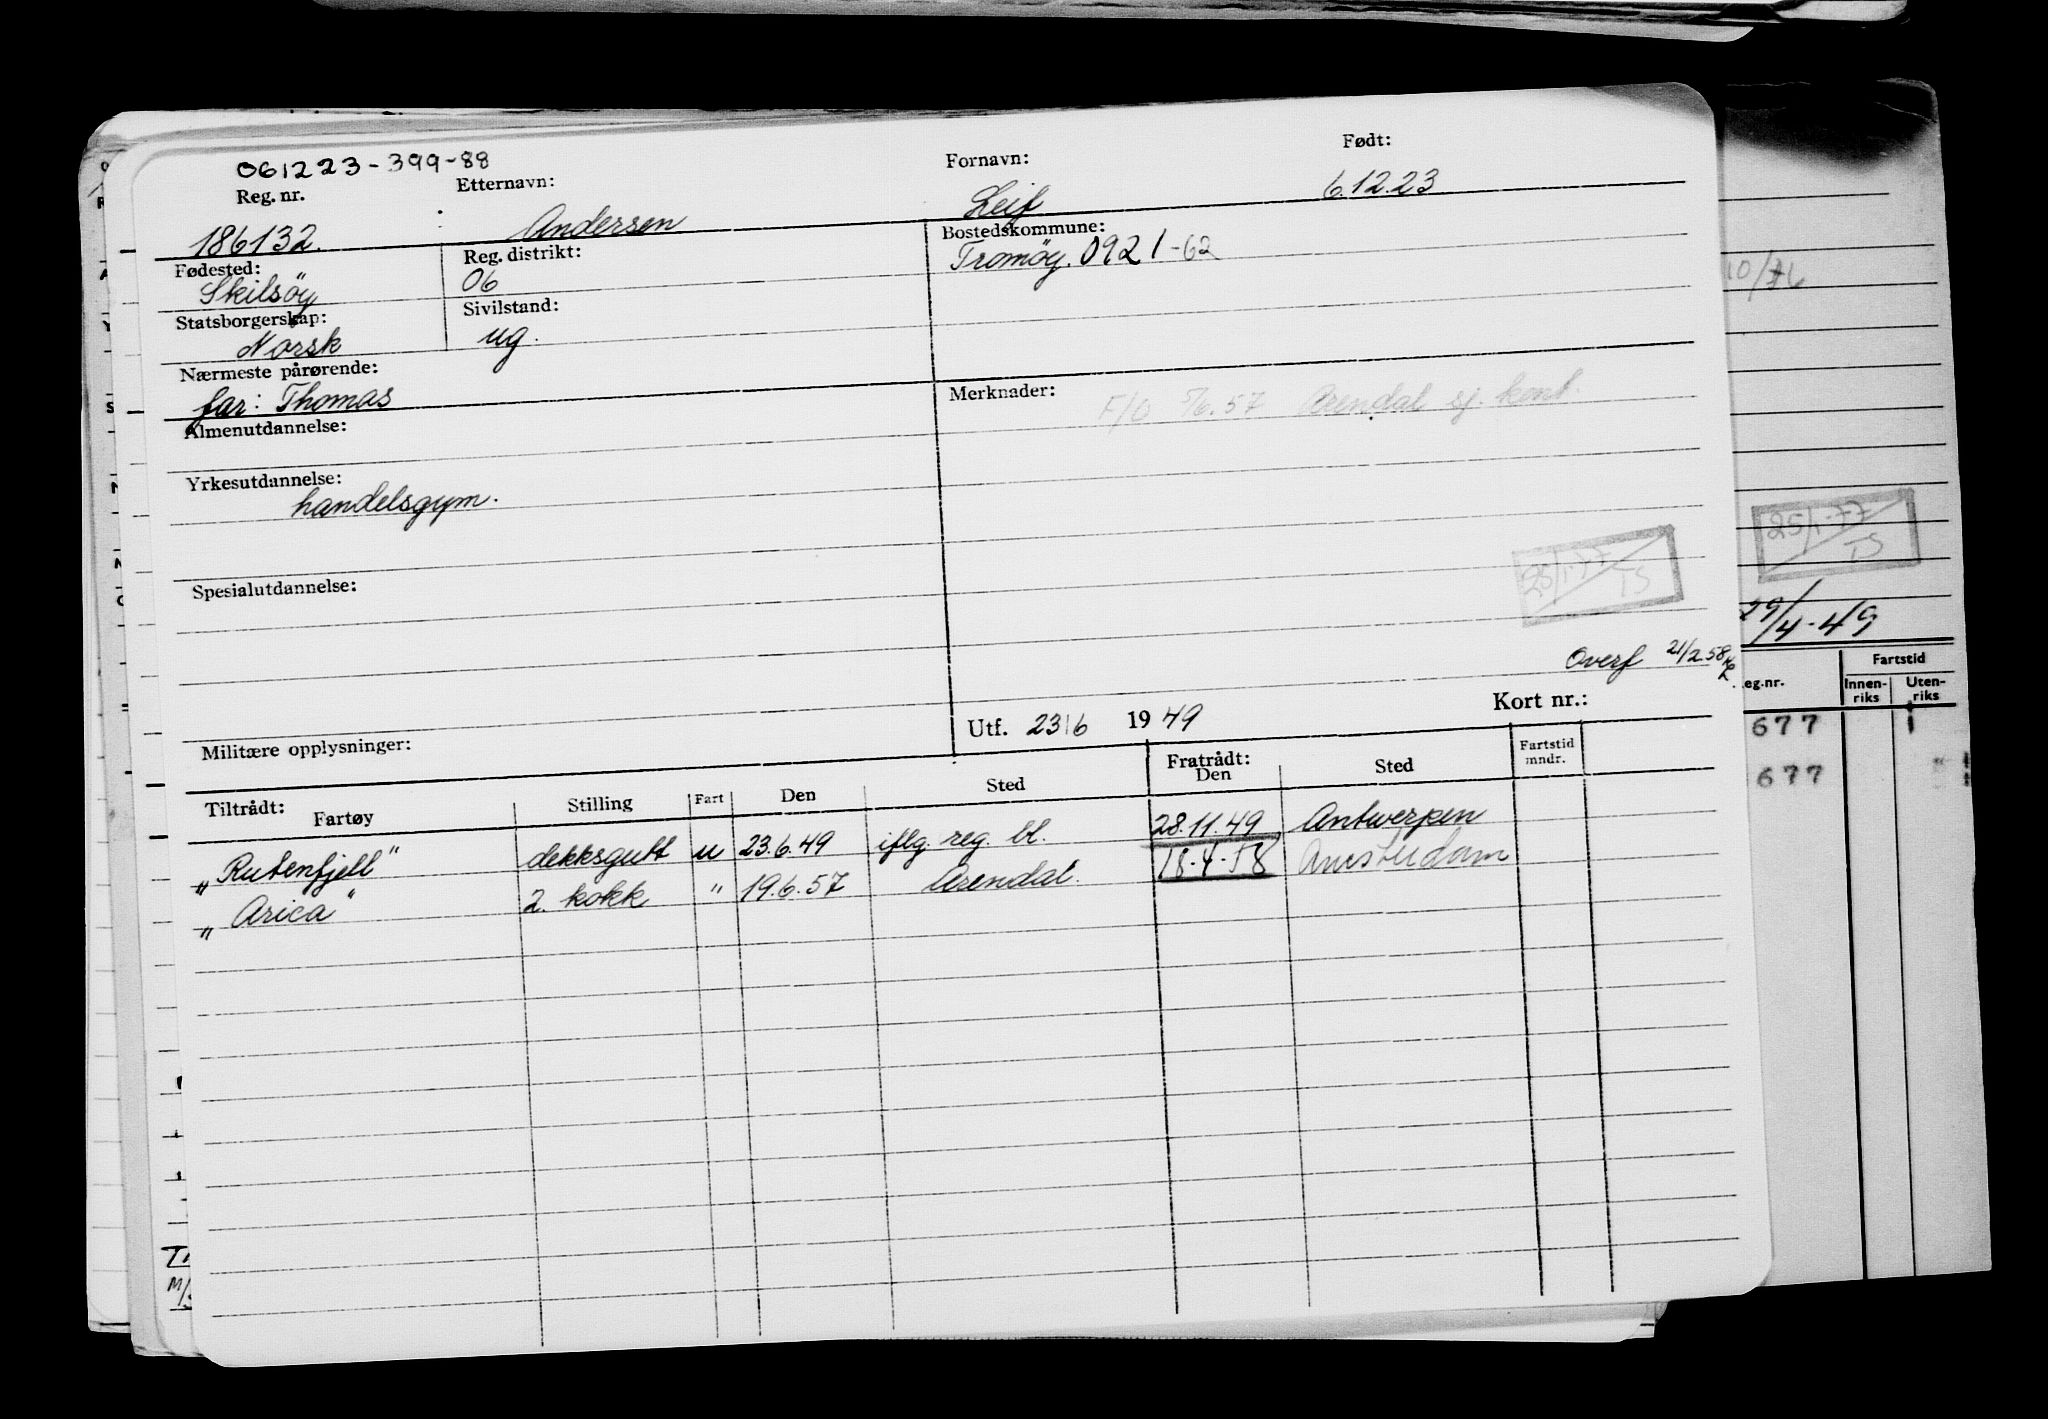 061223-399-88
Reg. nr. Etternavn: Fornavn: Født:
186132. Andersen Leif 6.12.23
Fødested: Reg. distrikt: Bostedskommune:
Skilsöy 06 Tromöy. 0921-62
Statsborgerskap: Sivilstand:
Norsk ug.
Nærmeste pårørende: Merknader:
far: Thomas F/O 5/6.57 Arendal sj. kont.
Almenutdannelse:
Yrkesutdannelse:
handelsgym.
25/1-77
TS
Spesialutdannelse:
Overf 21/2.58
Utf. 23/6 19 49 Kort nr.:
Militære opplysninger:
Tiltrådt: Fartøy Stilling Fart Den Sted Fratrådt: Den Sted Fartstid mndr.
"Rutenfjell" dekksgutt u 23.6.49 iflg. reg. bl. 28.11.49 Antwerpen
"Arica" 2. kokk " 19.6.57 Arendal. 18-4-58 Amsterdam
10/76
25/1-77
TS
29/4-49
eg.nr. Fartstid
Innen-riks Uten-riks
677 1
677